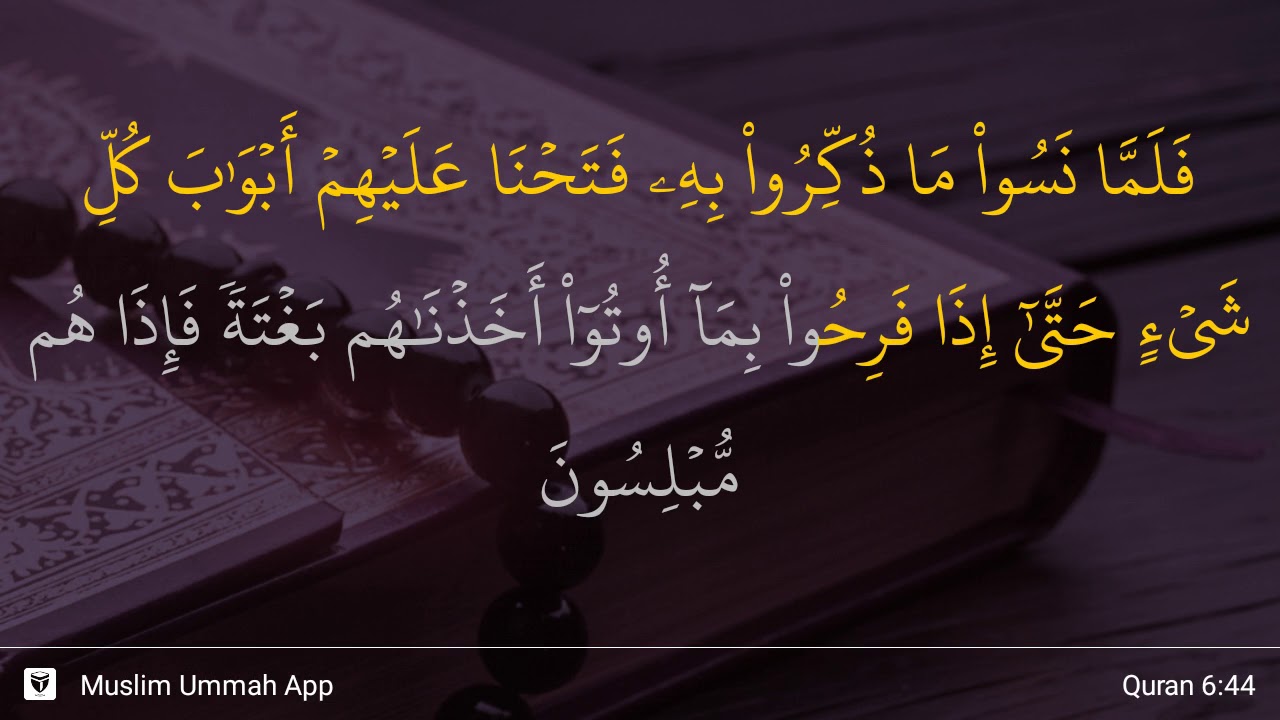 فَلَمَّا نَسُوا۟ مَا ذُكِّرُوا۟ بِهِۦ فَتَحْنَا عَلَيْهِمْ أَبْوَٰبَ كُلِّ
شَىْءٍ حَتَّىٰٓ إِذَا فَرِحُوا۟ بِمَآ أُوتُوٓا۟ أَخَذْنَـٰهُم بَغْتَةً فَإِذَا هُم
مُّبْلِسُونَ
Muslim Ummah App
Quran 6:44